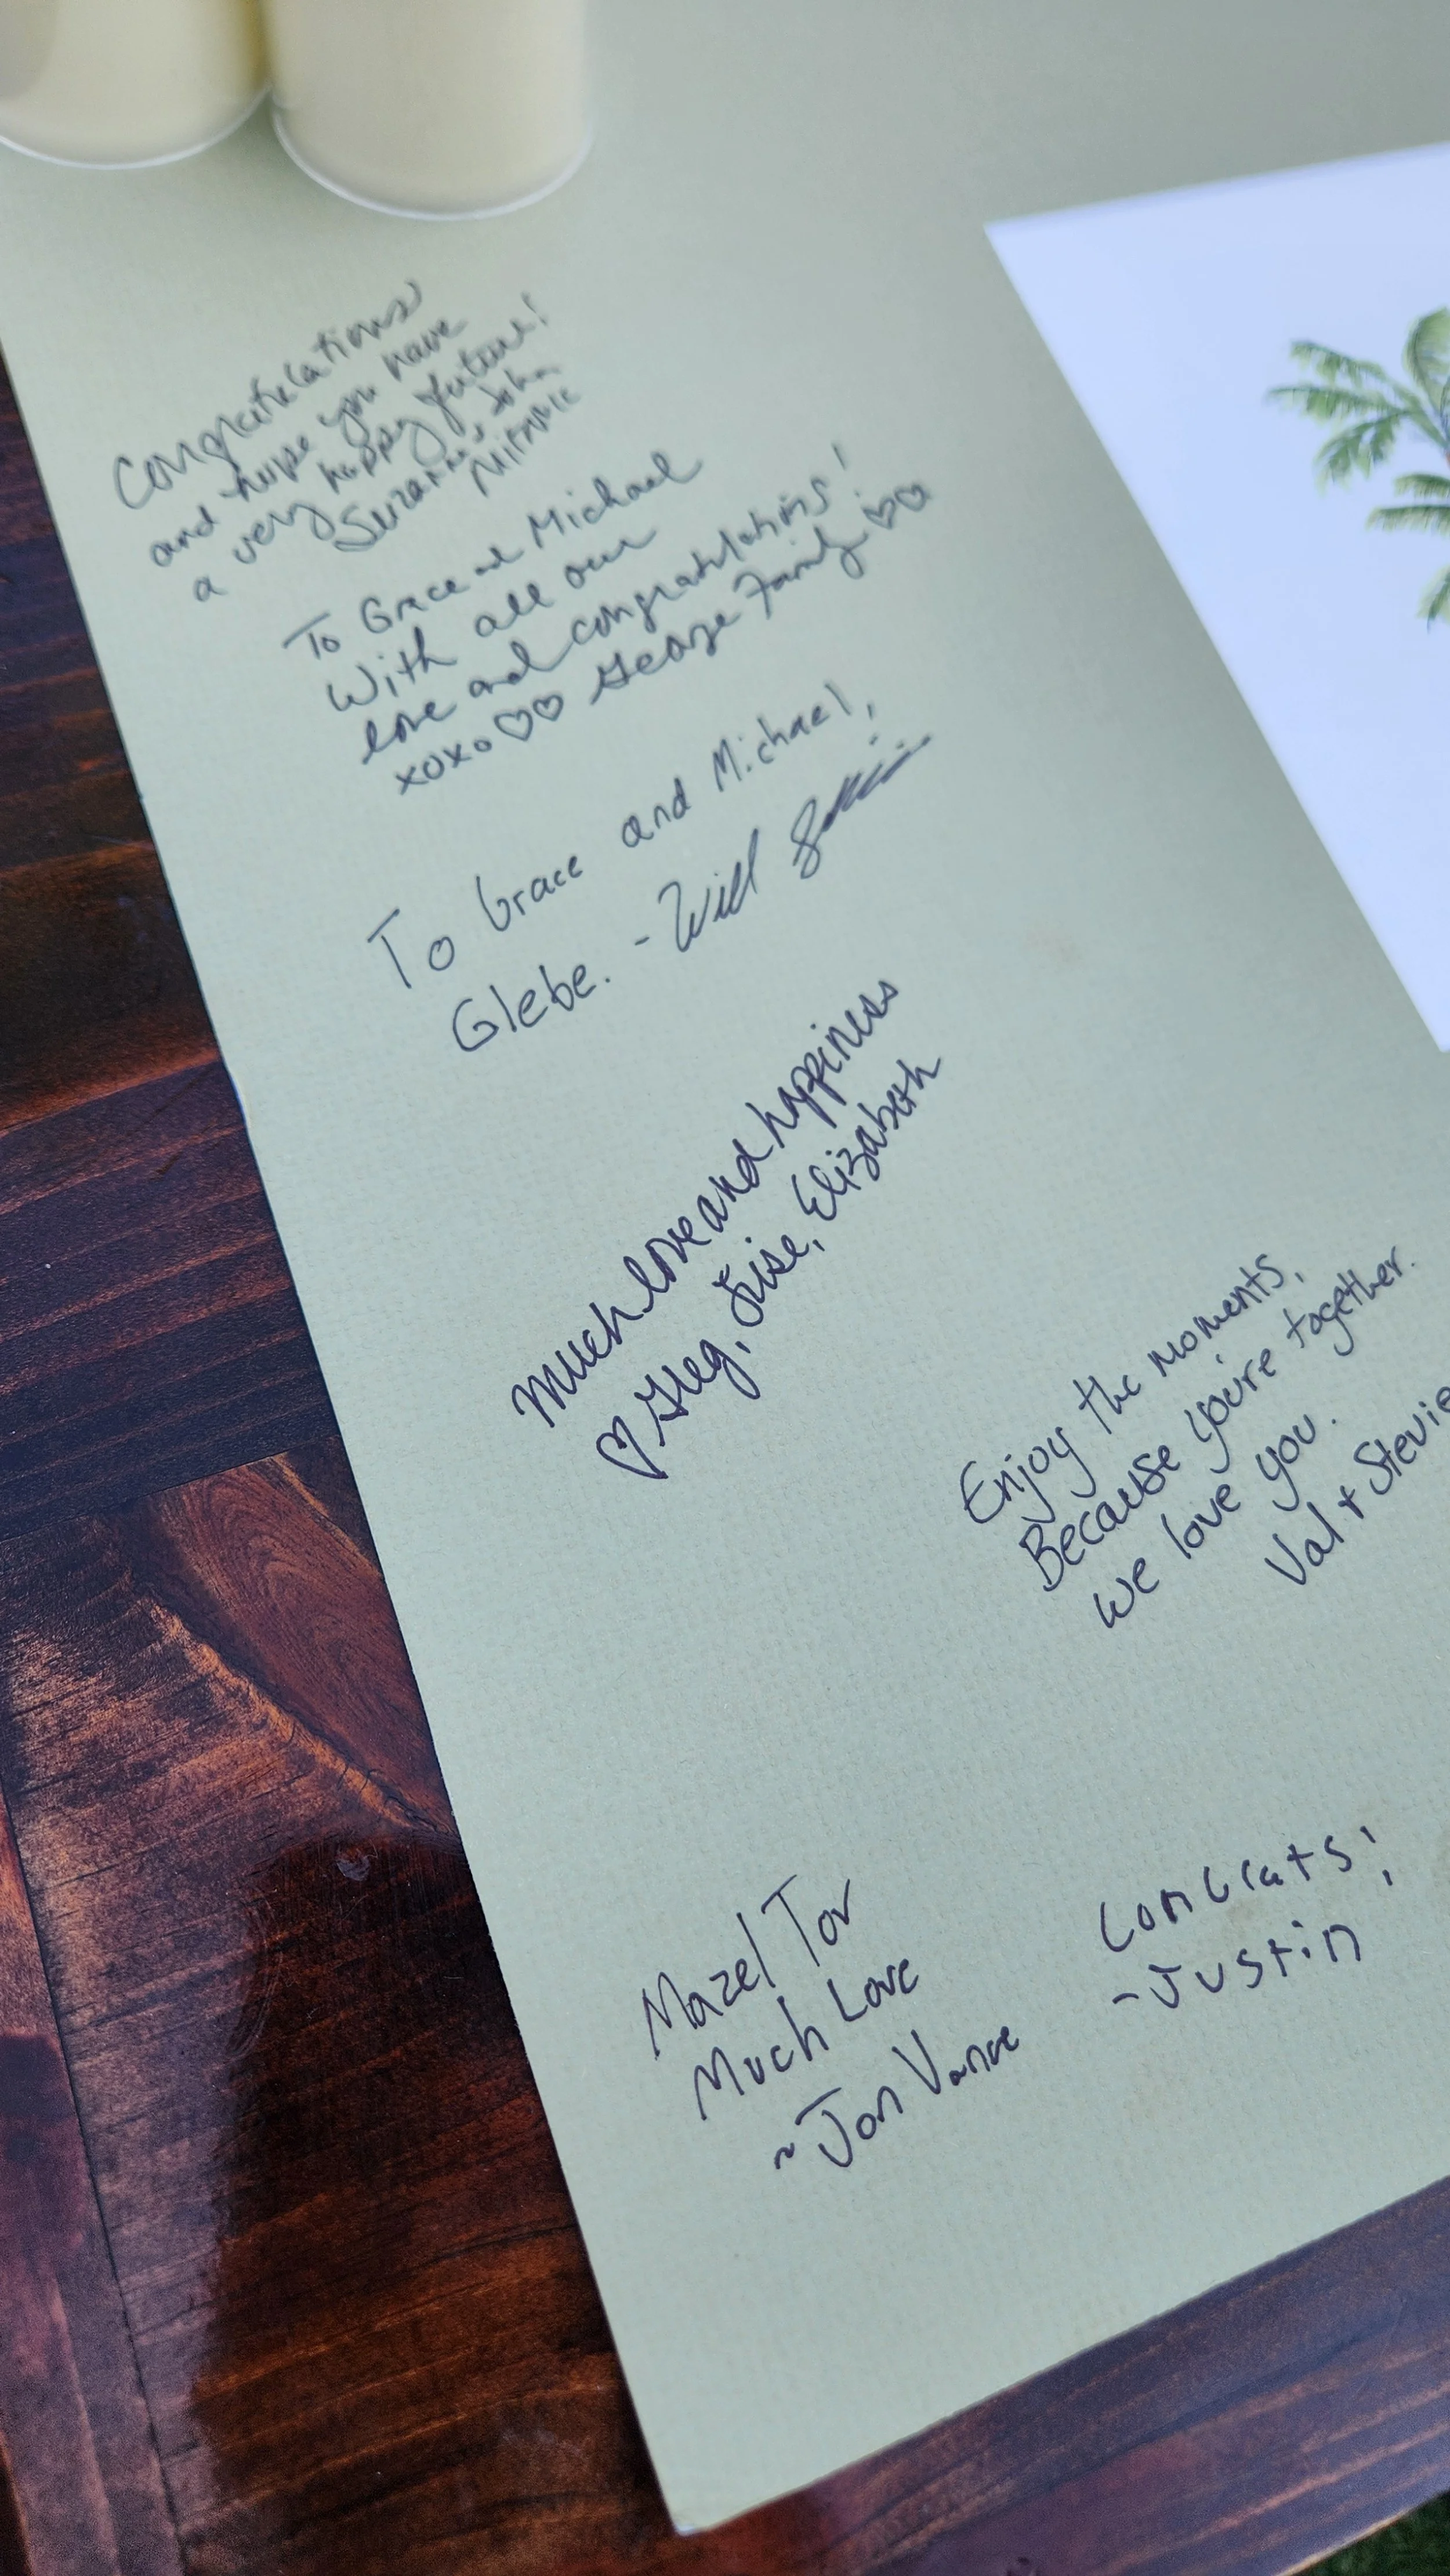 Congratulations
and hope you have
a very happy future!
Suzanne & John
To Grace and Michael
With all our
love and congratulations!
xoxo ♡♡ George Family ♡♡
To Grace and Michael,
Glebe. - Will
Much love and happiness
♡ Greg, Lise, Elizabeth
Enjoy the moments,
Because you're together.
We love you.
Val + Stevie
Mazel Tov
Much Love
~Jon Vance
Congrats!
-Justin